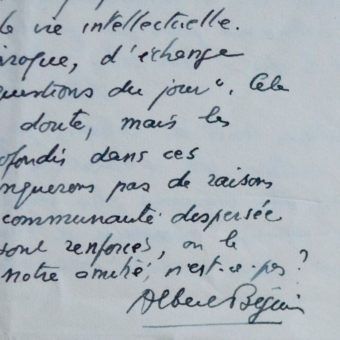 de vie intellectuelle.
d'échange
questions du jour". Cela
doute, mais les
ofondis dans ces
nquerons pas de raisons
communauté dispersée
sont renforcés, on le
notre amitié, n'est-ce-pas?
Albert Béguin